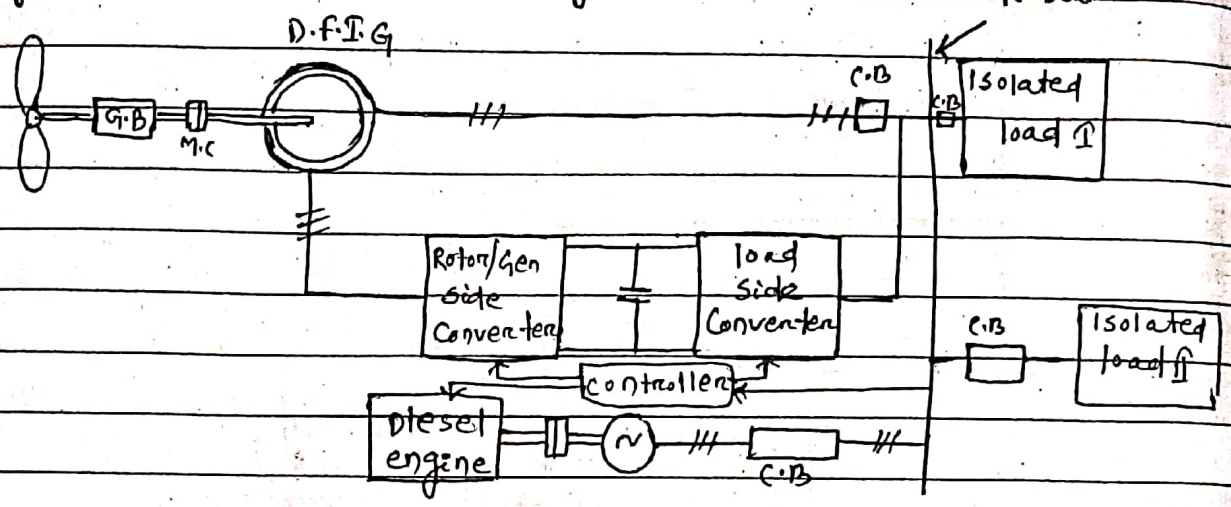 D.F.I.G
C.B
Isolated
load I
C.B
G.B
M.C
Rotor/Gen
side
Converter
load
side
Converter
C.B
Isolated
load II
controller
Diesel
engine
~
C.B